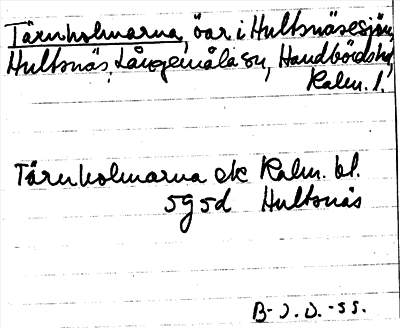 Tärnholmarna, öar i Hultsnäsesjön,
Hultsnäs, Långemåla sn, Handbörds hd,
Kalm. l.
Tärnholmarna ek Kalm. bl.
5g5d Hultsnäs
B-J.D.-55.